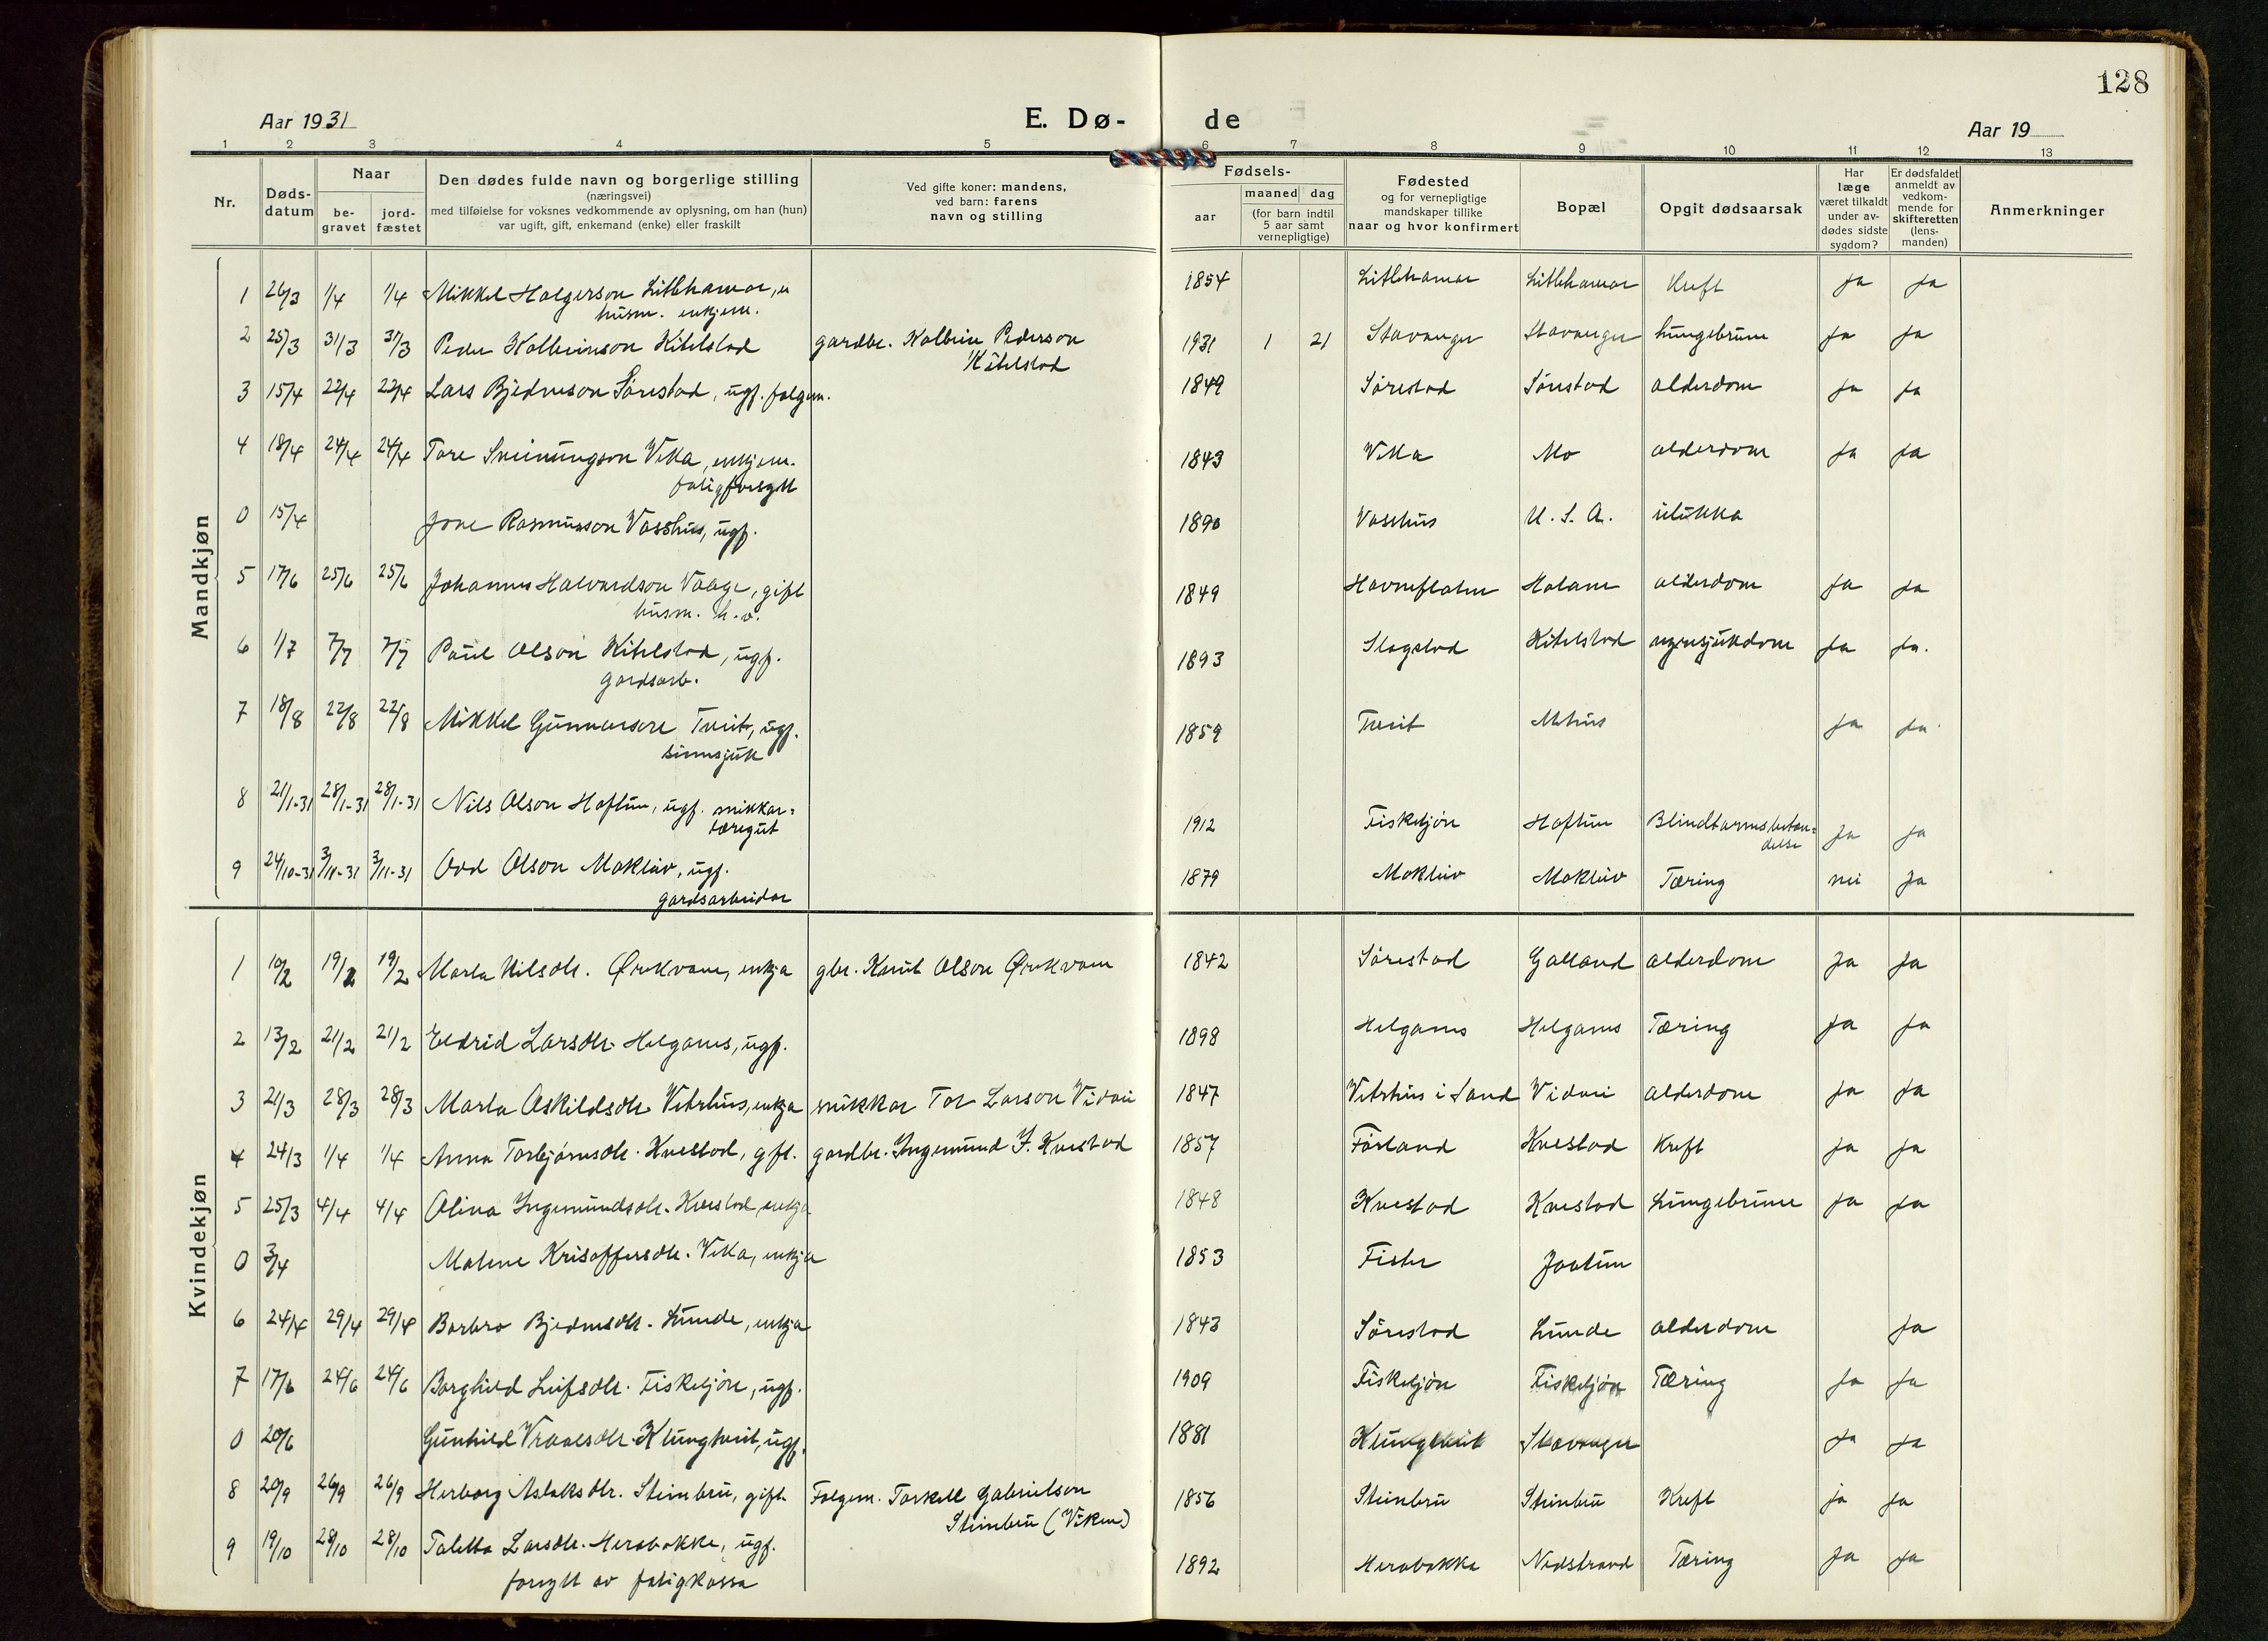 128
Aar 1931
E. Dø-
de
Aar 19
1 2 3 4 5 6 7 8 9 10 11 12 13
Nr.
Døds-
datum
Naar
be-
gravet
jord-
fæstet
Den dødes fulde navn og borgerlige stilling
(næringsvei)
med tilføielse for voksnes vedkommende av oplysning, om han (hun)
var ugift, gift, enkemand (enke) eller fraskilt
Ved gifte koner: mandens,
ved barn: farens
navn og stilling
Fødsels-
aar
maaned dag
(for barn indtil
5 aar samt
vernepligtige)
Fødested
og for vernepligtige
mandskaper tillike
naar og hvor konfirmert
Bopæl
Opgit dødsaarsak
Har
læge
været tilkaldt
under av-
dødes sidste
sygdom?
Er dødsfaldet
anmeldt av
vedkom-
mende for
skifteretten
(lens-
manden)
Anmerkninger
Mandkjøn
1 26/3 1/4 1/4 Mikkel Holgerson Litlehamar, 1854 Litlehamar Litlehamar Kreft ja ja
husm. enkjem.
2 25/3 31/3 31/3 Peder Kolbeinson Kitelstad gardbr. Kolbein Pederson 1931 1 21 Stavanger Stavanger lungebrune ja ja
Kitelstad
3 15/4 22/4 22/4 Lars Bjedneson Sørestad, ugf. folgem. 1849 Sørestad Sørestad alderdom ja ja
4 18/4 24/4 24/4 Tore Sveinungson Vika, enkjem. 1843 Vika Mo alderdom ja ja
fatigforsytt
0 15/4 Jone Rasmusson Vasshus, ugf. 1890 Vasshus U. S. A. ulukka
5 17/6 25/6 25/6 Johannes Halvardson Vaage, gift 1849 Havreflaten Halane alderdom ja ja
husm. h.v.
6 1/7 7/7 7/7 Paul Olson Kitelstad, ugf. 1893 Slogstad Kitelstad nyresjukdom ja ja.
gardsarb.
7 18/8 22/8 22/8 Mikkel Gunnarson Tveit, ugf. 1859 Tveit Mehus ja ja
sinnsjuk
8 21/1-31 28/1-31 28/1-31 Nils Olson Hoftun, ugf. snikkar= 1912 Fisketjøn Hoftun Blindtarmsbeten= ja ja
læregut
delse
9 24/10-31 3/11-31 3/11-31 Odd Olson Mokleiv, ugf. 1879 Mokleiv Mokleiv Tæring nei ja
gardsarbeidar
Kvindekjøn
1 10/2 19/2 19/2 Marta Nilsdtr. Ørekvam, enkja gbr. Knut Olson Ørekvam 1842 Sørestad Galland alderdom ja ja
2 13/2 21/2 21/2 Eldrid Larsdtr. Helganes, ugf. 1898 Helganes Helganes Tæring ja ja
3 21/3 28/3 28/3 Marta Askildsdtr. Vetrhus, enkja snikkar Tor Larson Vidvei 1847 Vetrhus i Sand Vidvei alderdom ja ja
4 24/3 1/4 1/4 Anna Torbjørnsdtr. Kvestad, gft. gardbr. Ingemund I. Kvestad 1857 Førland Kvestad Kreft ja ja
5 25/3 4/4 4/4 Olina Ingemundsdtr. Kvestad, enkja 1848 Kvestad Kvestad Lungebrune ja ja
0 3/4 Malene Krisoffersdtr. Vika, enkja 1853 Fister Jaatun
6 24/4 29/4 29/4 Barbro Bjednesdtr. Lunde, enkja 1843 Sørestad Lunde alderdom ja
7 17/6 24/6 24/6 Borghild Leifsdtr. Fisketjøn, ugf. 1909 Fisketjøn Fisketjøn Tæring ja ja
0 20/6 Gunhild Vraalsdtr. Klungtveit, ugf. 1881 Klungtveit Stavanger ja ja
8 20/9 26/9 26/9 Herborg Aslaksdtr. Steinbru, gift. Folgem. Torkell Gabrielson 1856 Steinbru Steinbru Kreft ja ja
Steinbru (Viken)
9 19/10 28/10 28/10 Taletta Larsdtr. Herabakka, ugf. 1892 Herabakka Nedstrand Tæring ja ja
forsytt av fatigkassa